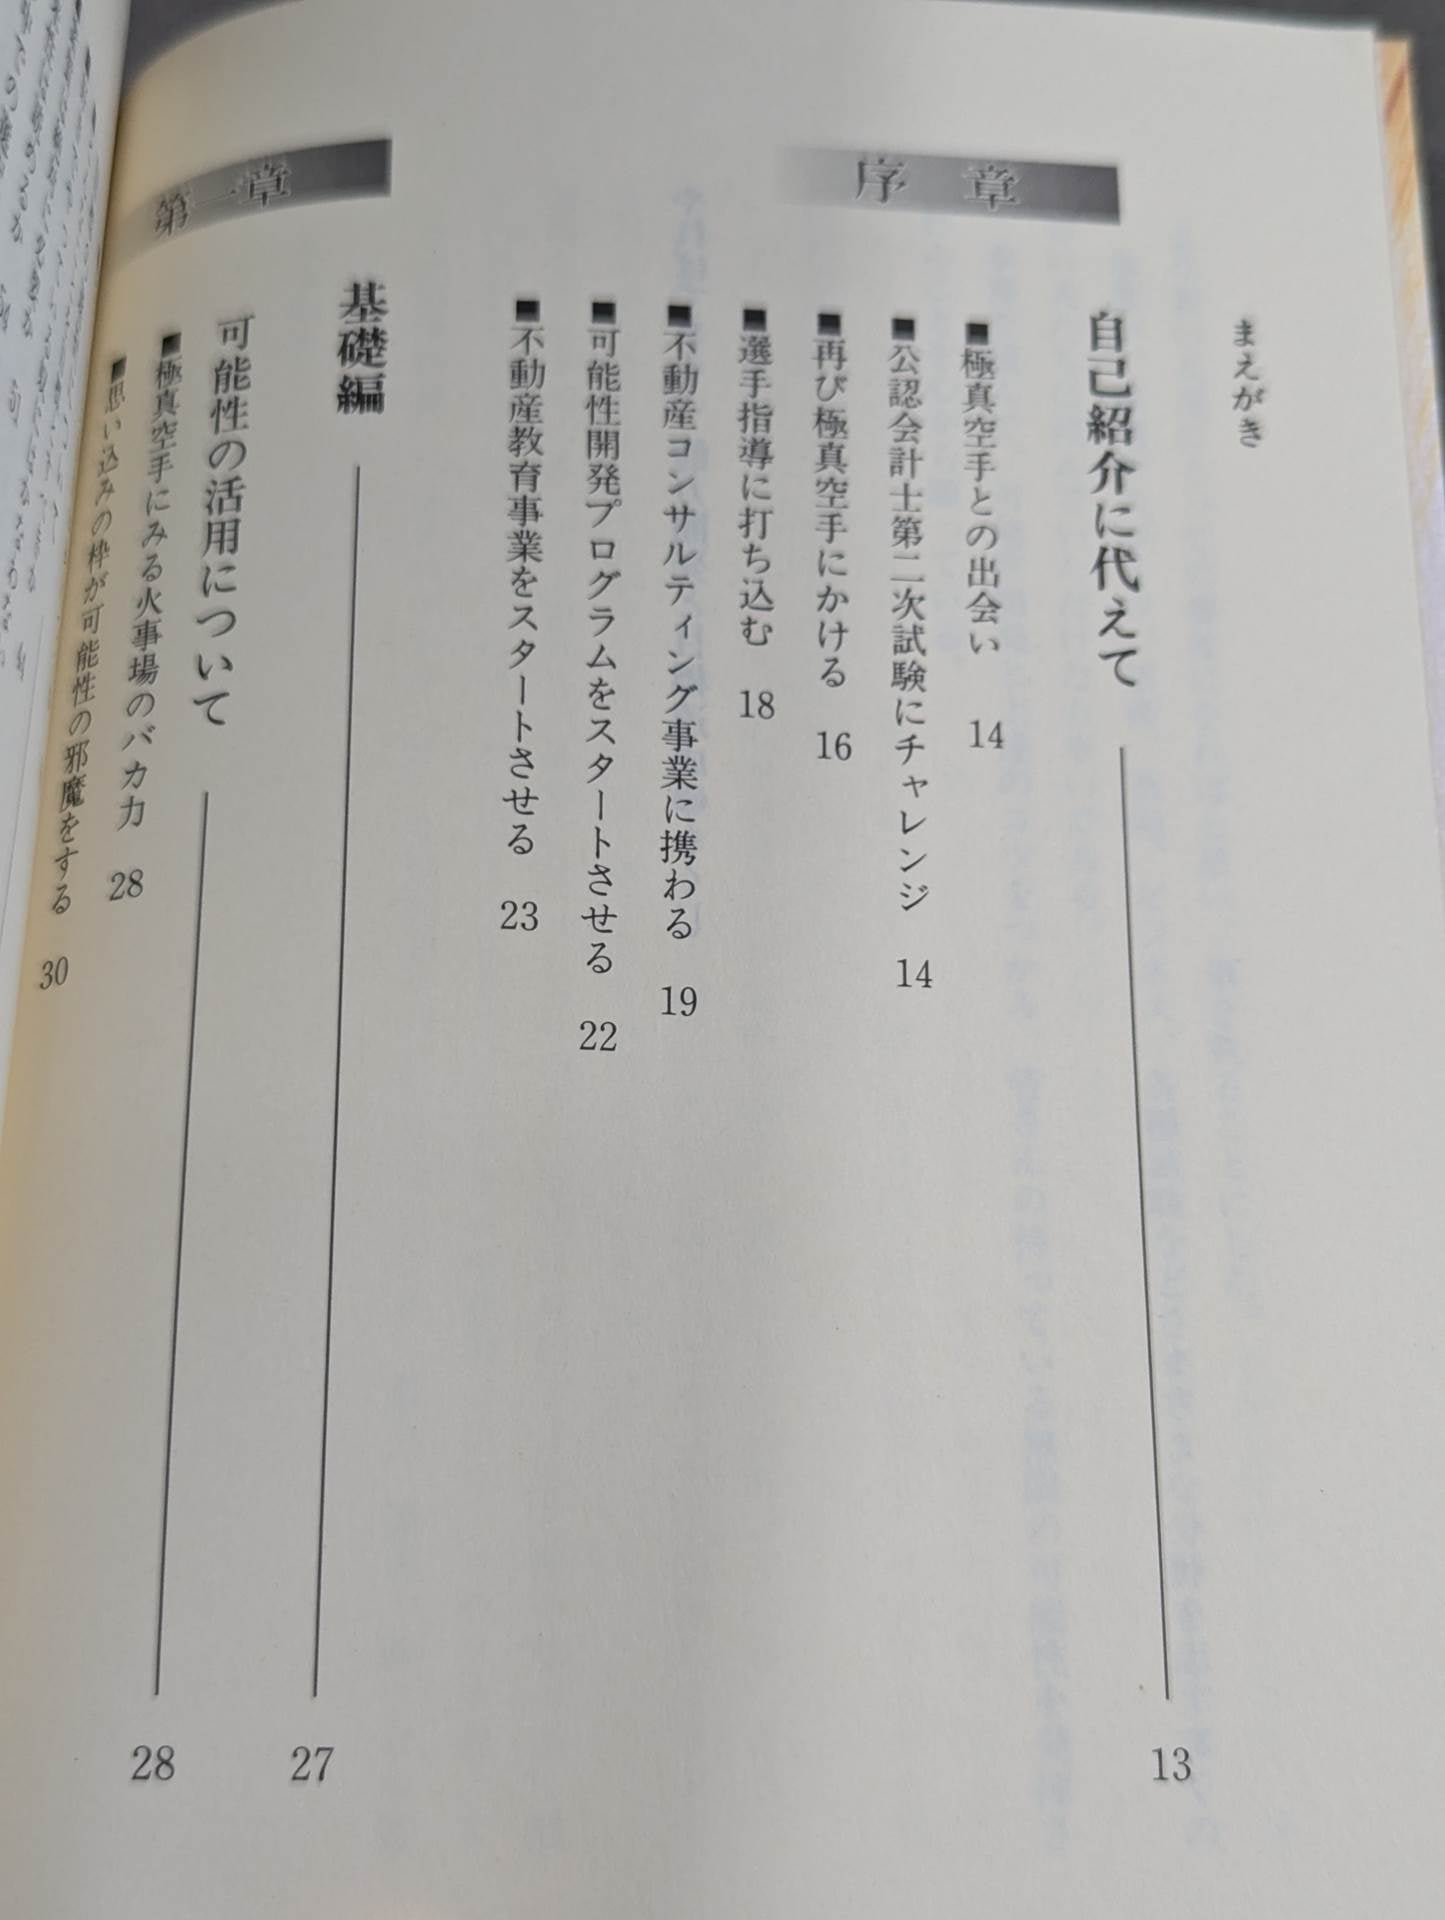 まえがき
序章
自己紹介に代えて 13
■極真空手との出会い 14
■公認会計士第二次試験にチャレンジ 14
■再び極真空手にかける 16
■選手指導に打ち込む 18
■不動産コンサルティング事業に携わる 19
■可能性開発プログラムをスタートさせる 22
■不動産教育事業をスタートさせる 23
第一章
基礎編 27
可能性の活用について 28
■極真空手にみる火事場のバカ力 28
■思い込みの枠が可能性の邪魔をする 30